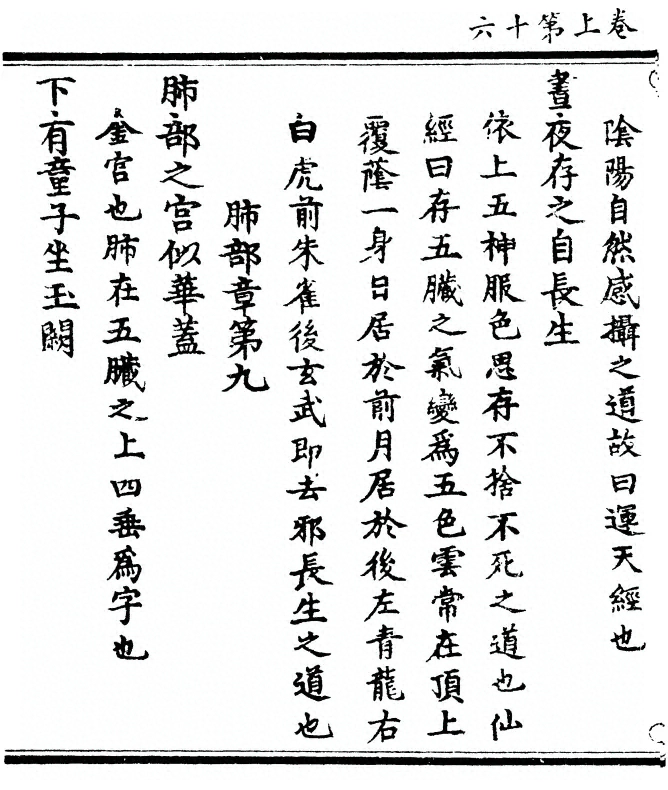 卷上第十六
陰陽自然感攝之道故曰運天經也
晝夜存之自長生
依上五神服色思存不捨不死之道也仙
經曰存五臟之氣變為五色雲常在頂上
覆蔭一身日居於前月居於後左青龍右
白虎前朱雀後玄武即去邪長生之道也
肺部章第九
肺部之宮似華蓋
金宮也肺在五臟之上四垂為宇也
下有童子坐玉闕